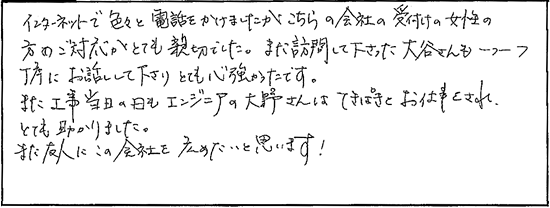 インターネットで色々と電話をかけましたがこちらの会社の受付けの女性の
方のご対応がとても親切でした。また訪問して下さった大谷さんも一つ一つ
丁寧にお話しして下さりとても心強かったです。
また工事当日の日もエンジニアの大野さんはてきぱきとお仕事をされ、
とても助かりました。
また友人にこの会社を広めたいと思います!